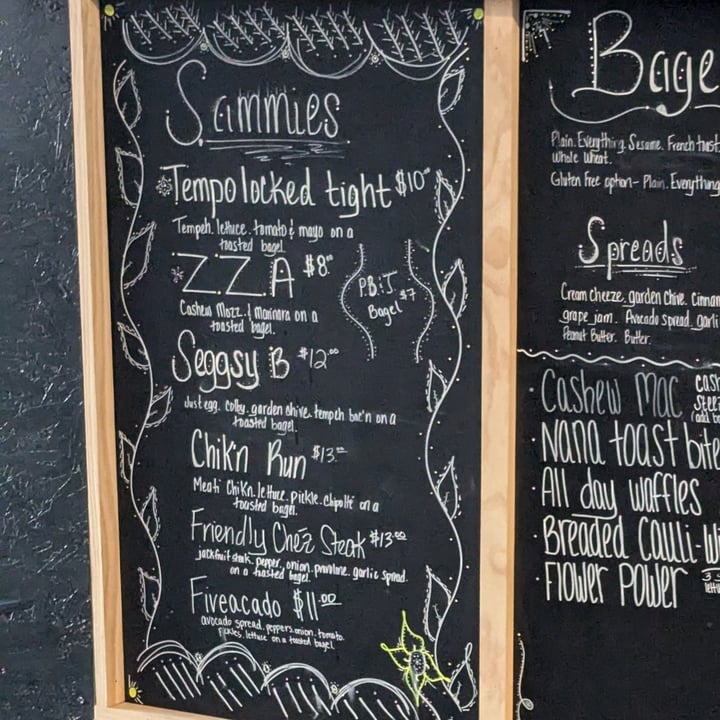 Sammies
Tempo locked tight $10
Tempeh. lettuce. tomato & mayo on a
toasted bagel.
Z.Z.A $8.00
Cashew Mozz. & Marinara on a
toasted bagel.
P.B. & J
Bagel $7
Seggsy B $12.00
Just egg. colby. garden chive. tempeh bac'n on a
toasted bagel.
Chik'n Run $13.00
Meati Chik'n. lettuce. pickle. chipotle on a
toasted bagel.
Friendly Chez Steak $13.00
jackfruit steak. pepper. onion. provolone. garlic spread.
on a toasted bagel.
Fiveacado $11.00
avocado spread. peppers. onion. tomato.
pickles. lettuce on a toasted bagel
Bage
Plain. Everything. Sesame. French toast.
Whole Wheat.
Gluten free option- Plain. Everything
Spreads
Cream cheeze. garden chive. cinnam
grape jam. Avocado spread. garli
Peanut Butter. Butter.
Cashew Mac
· Nana toast bite
· All day waffles
· Breaded Cauli-Wi
· Flower Power